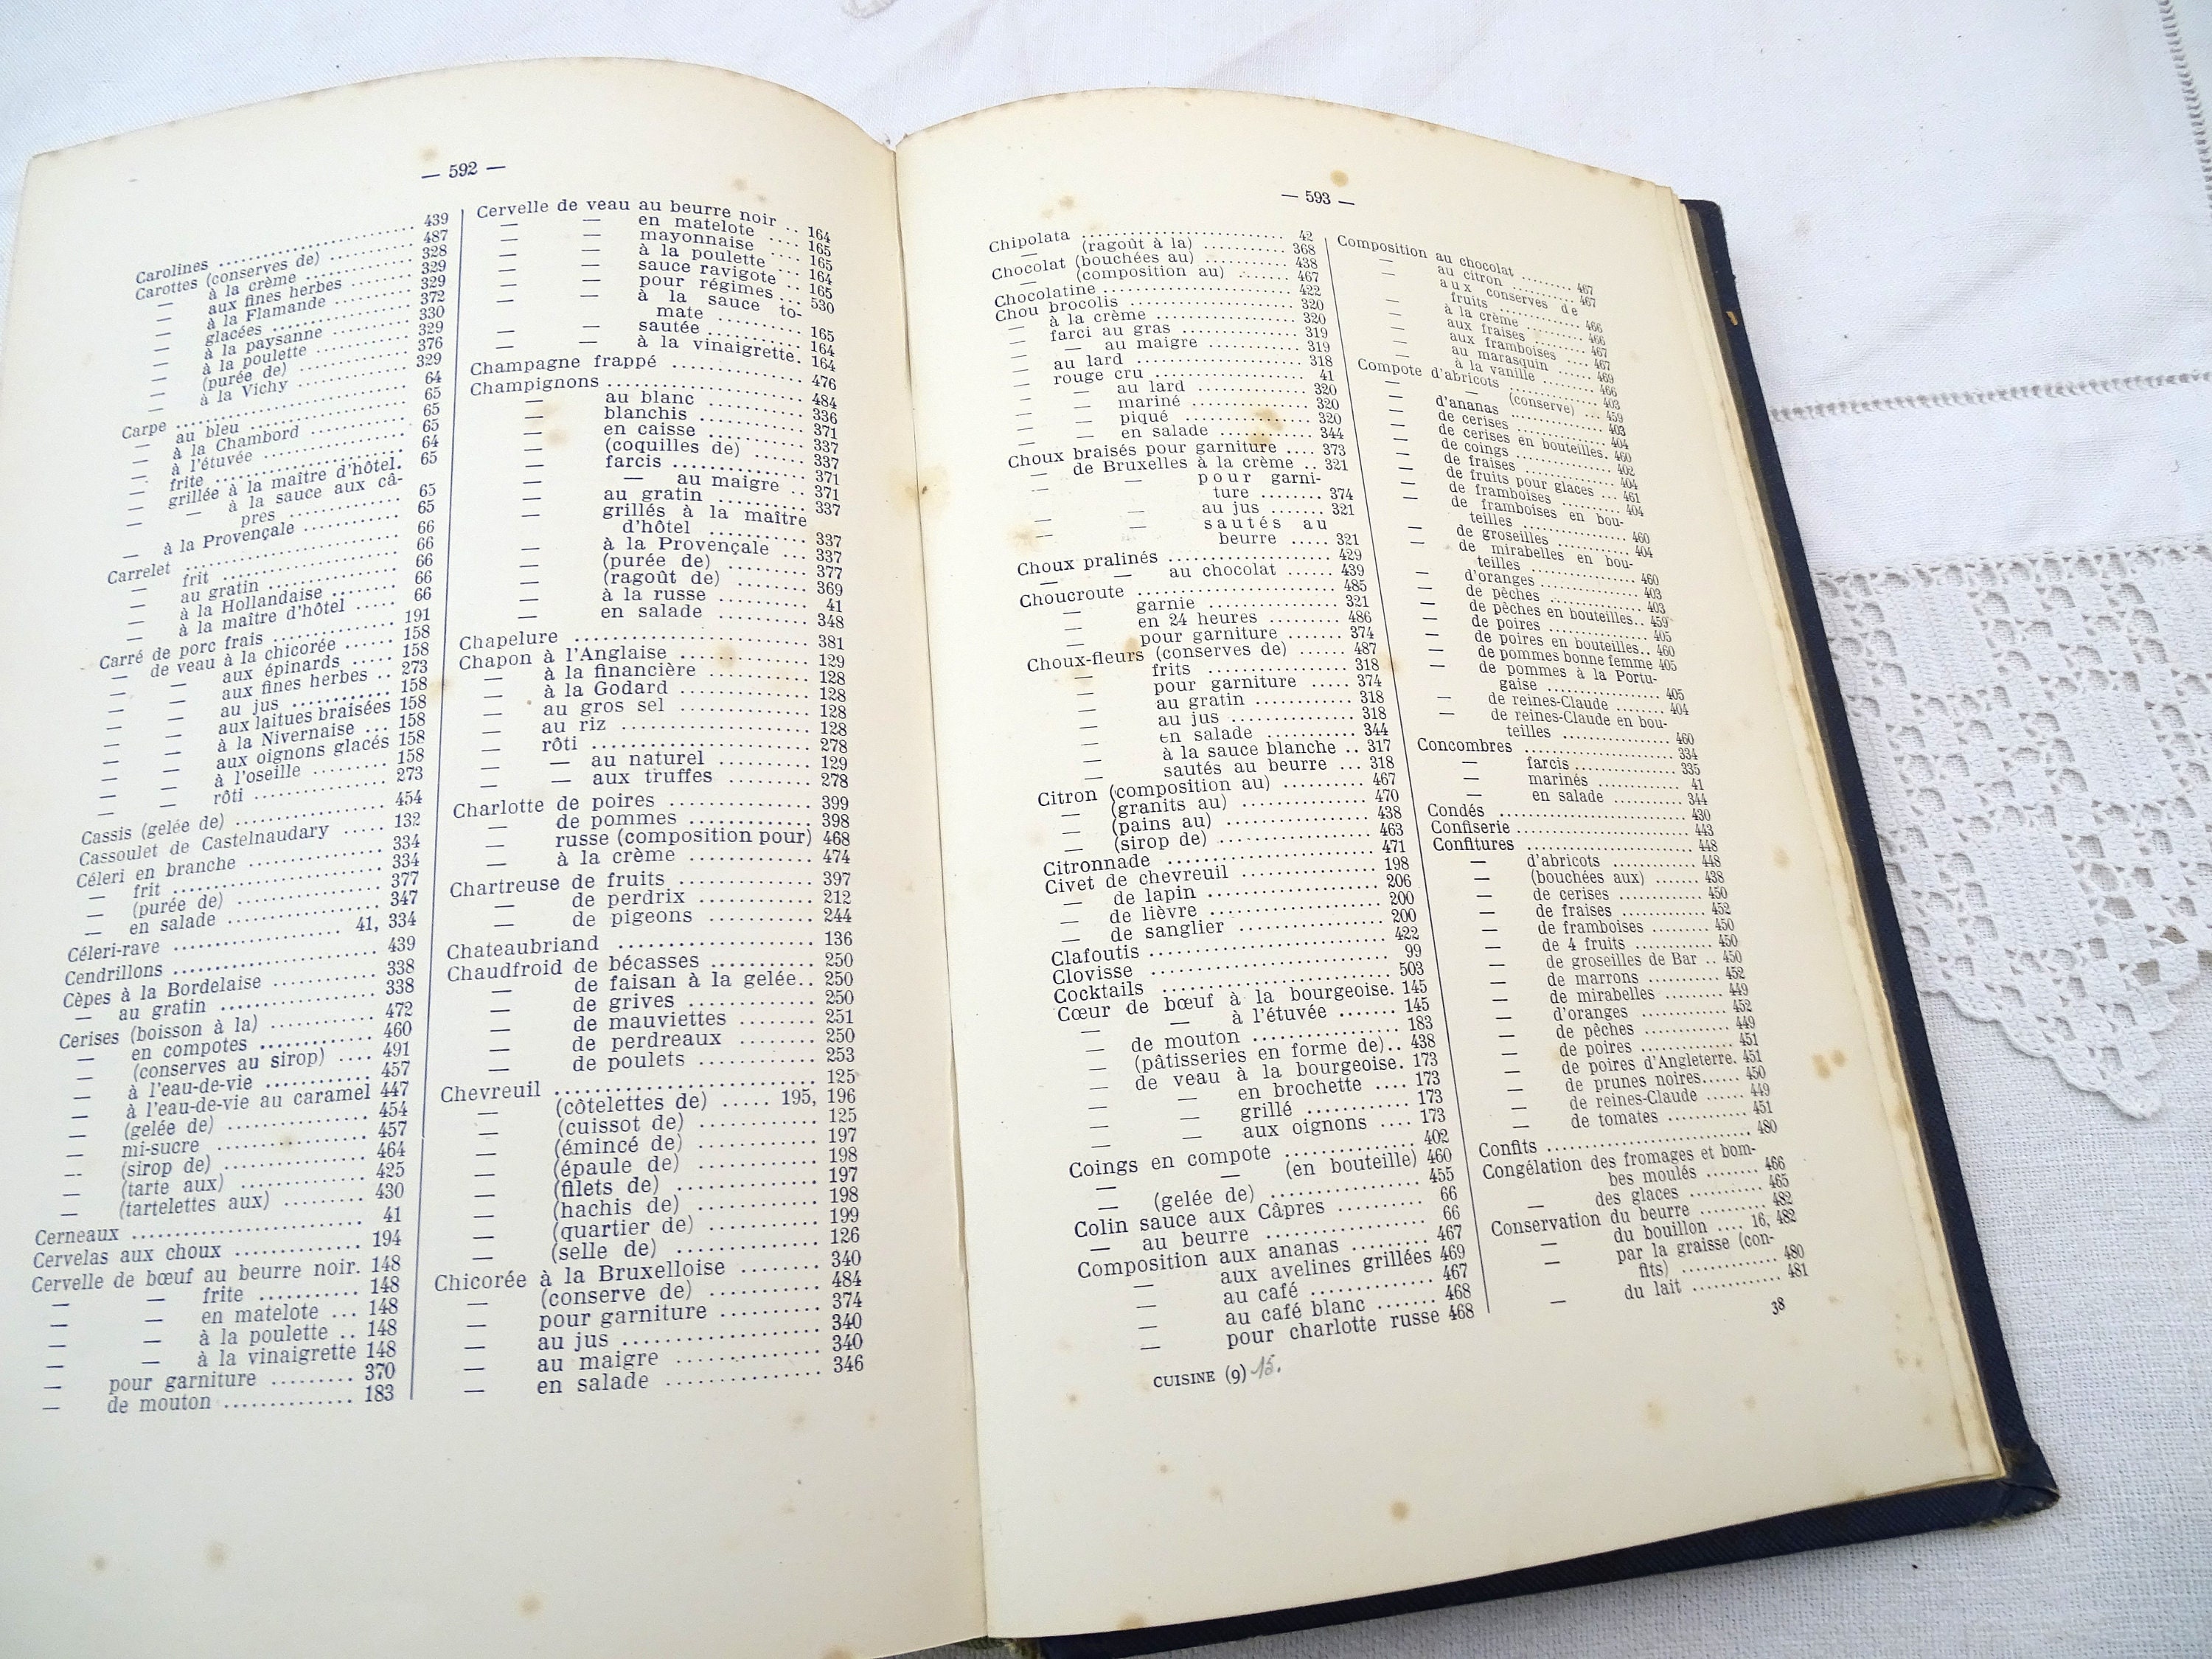 — 592 —
Carolines .......... 439
Carottes (conserves de) .......... 487
— à la crème .......... 328
— aux fines herbes .......... 329
— à la Flamande .......... 329
— glacées .......... 372
— à la paysanne .......... 330
— à la poulette .......... 329
— (purée de) .......... 376
— à la Vichy .......... 329
Carpe .......... 64
— au bleu .......... 65
— à la Chambord .......... 65
— à l'étuvée .......... 65
— frite .......... 64
— grillée à la maître d'hôtel. 65
— — à la sauce aux câ-
pres .......... 65
— à la Provençale .......... 65
Carrelet .......... 66
— frit .......... 66
— au gratin .......... 66
— à la Hollandaise .......... 66
— à la maître d'hôtel ..... 66
Carré de porc frais .......... 191
— de veau à la chicorée ...... 158
— — aux épinards ..... 158
— — aux fines herbes .. 273
— — au jus .......... 158
— — aux laitues braisées 158
— — à la Nivernaise ... 158
— — aux oignons glacés 158
— — à l'oseille ......... 158
— — rôti .......... 273
Cassis (gelée de) .......... 454
Cassoulet de Castelnaudary ..... 132
Céleri en branche .......... 334
— frit .......... 334
— (purée de) .......... 377
— en salade .......... 347
Céleri-rave .......... 41, 334
Cendrillons .......... 439
Cèpes à la Bordelaise .......... 338
— au gratin .......... 338
Cerises (boisson à la) .......... 472
— en compotes .......... 460
— (conserves au sirop) .... 491
— à l'eau-de-vie .......... 457
— à l'eau-de-vie au caramel 447
— (gelée de) .......... 454
— mi-sucre .......... 457
— (sirop de) .......... 464
— (tarte aux) .......... 425
— (tartelettes aux) .......... 430
Cerneaux .......... 41
Cervelas aux choux .......... 194
Cervelle de bœuf au beurre noir. 148
— — frite .......... 148
— — en matelote ... 148
— — à la poulette .. 148
— — à la vinaigrette 148
— pour garniture ......... 370
— de mouton .......... 183
Cervelle de veau au beurre noir .. 164
— — en matelote .... 165
— — mayonnaise .... 165
— — à la poulette ... 164
— — sauce ravigote .. 165
— — pour régimes ... 530
— — à la sauce to-
mate .......... 165
— — sautée .......... 164
— — à la vinaigrette. 164
Champagne frappé .......... 476
Champignons .......... 484
— au blanc .......... 336
— blanchis .......... 371
— en caisse .......... 337
— (coquilles de) ...... 337
— farcis .......... 371
— — au maigre .. 371
— au gratin .......... 337
— grillés à la maître
d'hôtel .......... 337
— à la Provençale ... 337
— (purée de) .......... 377
— (ragoût de) .......... 369
— à la russe .......... 41
— en salade .......... 348
Chapelure .......... 381
Chapon à l'Anglaise .......... 129
— à la financière .......... 128
— à la Godard .......... 128
— au gros sel .......... 128
— au riz .......... 128
— rôti .......... 278
— — au naturel .......... 129
— — aux truffes .......... 278
Charlotte de poires .......... 399
— de pommes .......... 398
— russe (composition pour) 468
— à la crème .......... 474
Chartreuse de fruits .......... 397
— de perdrix .......... 212
— de pigeons .......... 244
Chateaubriand .......... 136
Chaudfroid de bécasses .......... 250
— de faisan à la gelée.. 250
— de grives .......... 250
— de mauviettes ........ 251
— de perdreaux ........ 250
— de poulets .......... 253
Chevreuil .......... 125
— (côtelettes de) ..... 195, 196
— (cuissot de) .......... 125
— (émincé de) .......... 197
— (épaule de) .......... 198
— (filets de) .......... 197
— (hachis de) .......... 198
— (quartier de) .......... 199
— (selle de) .......... 126
Chicorée à la Bruxelloise ........ 340
— (conserve de) .......... 484
— pour garniture .......... 374
— au jus .......... 340
— au maigre .......... 340
— en salade .......... 346
— 593 —
Chipolata .......... 42
— (ragoût à la) .......... 368
Chocolat (bouchées au) .......... 438
— (composition au) ....... 467
Chocolatine .......... 422
Chou brocolis .......... 320
— à la crème .......... 320
— farci au gras .......... 319
— — au maigre .......... 319
— au lard .......... 318
— rouge cru .......... 41
— — au lard .......... 320
— — mariné .......... 320
— — piqué .......... 320
— — en salade .......... 344
Choux braisés pour garniture .... 373
— de Bruxelles à la crème .. 321
— — pour garni-
ture ........ 374
— — au jus ...... 321
— — sautés au
beurre ..... 321
Choux pralinés .......... 429
— — au chocolat ...... 439
Choucroute .......... 485
— garnie .......... 321
— en 24 heures .......... 486
— pour garniture ....... 374
Choux-fleurs (conserves de) ...... 487
— frits .......... 318
— pour garniture ..... 374
— au gratin .......... 318
— au jus .......... 318
— en salade .......... 344
— à la sauce blanche .. 317
— sautés au beurre ... 318
Citron (composition au) .......... 467
— (granits au) .......... 470
— (pains au) .......... 438
— (sirop de) .......... 463
Citronnade .......... 471
Civet de chevreuil .......... 198
— de lapin .......... 206
— de lièvre .......... 200
— de sanglier .......... 200
Clafoutis .......... 422
Clovisse .......... 99
Cocktails .......... 503
Cœur de bœuf à la bourgeoise. 145
— — à l'étuvée ....... 145
— de mouton .......... 183
— (pâtisseries en forme de).. 438
— de veau à la bourgeoise. 173
— — en brochette .... 173
— — grillé .......... 173
— — aux oignons .... 173
Coings en compote .......... 402
— — (en bouteille) 460
— (gelée de) .......... 455
Colin sauce aux Câpres .......... 66
— au beurre .......... 66
Composition aux ananas ......... 467
— aux avelines grillées 469
— au café .......... 467
— au café blanc ....... 468
— pour charlotte russe 468
Composition au chocolat .......... 467
— au citron .......... 467
— aux conserves de
fruits .......... 466
— à la crème .......... 466
— aux fraises .......... 467
— aux framboises .... 467
— au marasquin ...... 469
— à la vanille .......... 466
Compote d'abricots .......... 403
— — (conserve) ... 459
— d'ananas .......... 403
— de cerises .......... 404
— de cerises en bouteilles. 460
— de coings .......... 402
— de fraises .......... 404
— de fruits pour glaces ... 461
— de framboises .......... 404
— de framboises en bou-
teilles .......... 460
— de groseilles .......... 404
— de mirabelles en bou-
teilles .......... 460
— d'oranges .......... 403
— de pêches .......... 403
— de pêches en bouteilles.. 459
— de poires .......... 405
— de poires en bouteilles.. 460
— de pommes bonne femme 405
— de pommes à la Portu-
gaise .......... 405
— de reines-Claude ....... 404
— de reines-Claude en bou-
teilles .......... 460
Concombres .......... 334
— farcis .......... 335
— marinés .......... 41
— en salade .......... 344
Condés .......... 430
Confiserie .......... 443
Confitures .......... 448
— d'abricots .......... 448
— (bouchées aux) ....... 438
— de cerises .......... 450
— de fraises .......... 452
— de framboises ......... 450
— de 4 fruits .......... 450
— de groseilles de Bar .. 450
— de marrons .......... 452
— de mirabelles ......... 449
— d'oranges .......... 452
— de pêches .......... 449
— de poires .......... 451
— de poires d'Angleterre. 451
— de prunes noires...... 450
— de reines-Claude ...... 449
— de tomates .......... 451
Confits .......... 480
Congélation des fromages et bom-
bes moulés ........ 466
— des glaces .......... 465
Conservation du beurre .......... 482
— du bouillon .... 16, 482
— par la graisse (con-
fits) .......... 480
— du lait .......... 481
CUISINE (9) 15.
38